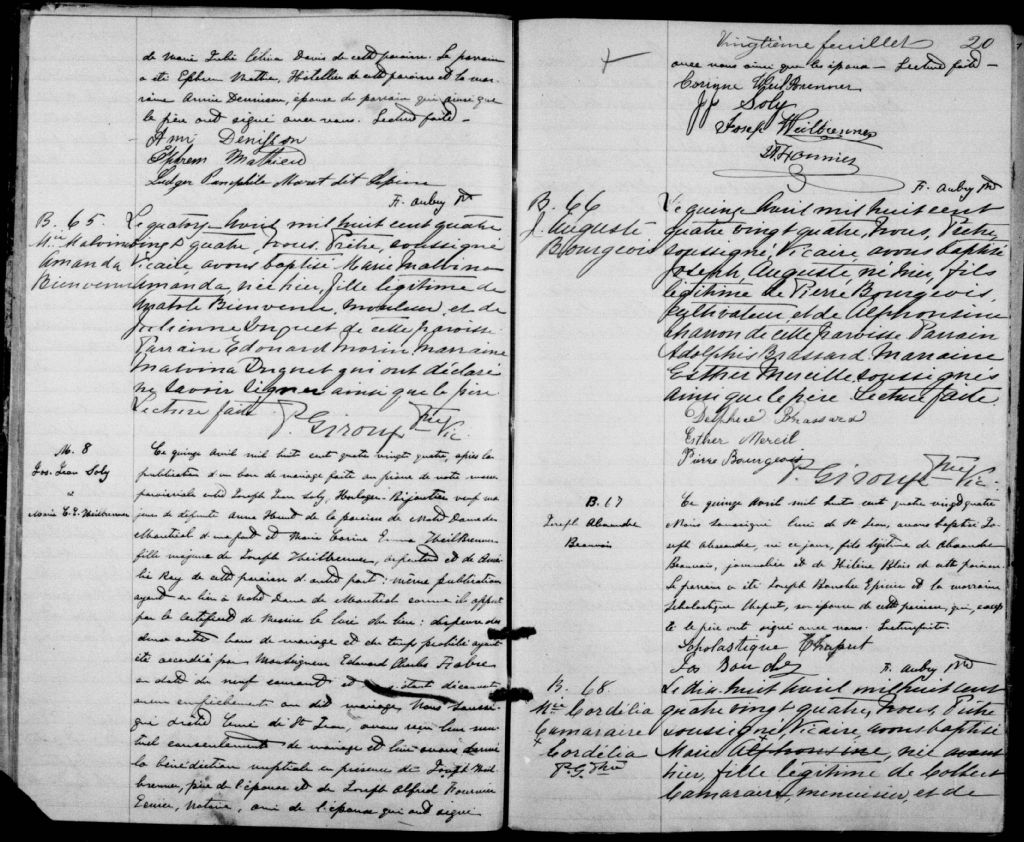 de Marie Lébi Célina Denis de cette paroisse. Le parrain
a été Ephrem Mathieu, Hôtellier de cette paroisse et la mar
raine Annie Dennison, épouse du parrain qui ainsi que
le père ont signé avec nous. Lecture faite -
Ann Denisson
Ephrem Mathieu
Ludger Pamphile Moret dit Lépine
F. Aubry Ptre
B. 65
Mie Malvina
Amanda
Bienvenu
Le quatorze Avril mil huit cent quatre
vingt quatre, Nous, Prêtre, soussigné
Vicaire, avons baptisé Marie Malvina
Amanda, née hier, fille légitime de
Bienvenu, mouleur, et de
Julienne Duquet de cette paroisse
Parrain Edouard Morin, Marraine
Malvina Duquet qui ont déclaré
ne savoir signer ainsi que le père
Lecture faite.
P. Giroux Ptre Vic.
M. 8
Jos. Léon Soly
&
Marie C. E. Heilbronner
Ce quinze Avril mil huit cent quatre vingt quatre, après la
publication d'un ban de mariage faite au prône de notre messe
paroissiale entre Joseph Léon Soly, Horloger-Bijoutier veuf ma
jeur de défunte Anne de la paroisse de Notre Dame de
Montréal d'une part et Marie Corine Emma Heilbronner
fille mineure de Joseph Heilbronner, et de
Ray de cette paroisse d'autre part: même publication
ayant eu lieu à Notre Dame de Montréal comme il appert
par le certificat de Messire le Curé du lieu: dispense des
deux autres bans de mariage et du temps prohibé ayant
été accordée par Monseigneur Edouard Charles Fabre
en date du neuf courant et ne s'étant découvert
aucun empêchement au dit mariage, Nous soussi
gné Curé de St Léon, avons reçu leur mu
tuel consentement de mariage et leur avons donné
la bénédiction nuptiale en présence de Joseph Heil
bronner, père de l'épouse et de Joseph Alfred Fournier
Ecuier, Notaire, ami de l'époux qui ont signé
Vingtième feuillet 20
avec nous ainsi que les époux - Lecture faite -
Corinne Heilbronner
J L Soly
Joseph Heilbronner
J A Fournier
F. Aubry Ptre
B. 66
J. Auguste
Bourgeois
Le quinze Avril mil huit cent
quatre vingt quatre, Nous, Prêtre
soussigné, Vicaire, avons baptisé
Joseph Auguste né hier, fils
légitime de Pierre Bourgeois,
cultivateur et de Alphonsine
Charron de cette paroisse Parrain
Adolphis Brassard, Marraine
Esther Mercille soussignés
ainsi que le père. Lecture faite.
Delphice Brassard
Esther Mercil
Pierre Bourgeois
P. Giroux Ptre Vic.
B. 67
Joseph Alexandre
Beauvais
Ce quinze Avril mil huit cent quatre vingt quatre
Nous soussigné Curé de St Léon, avons baptisé Jo
seph Alexandre, né ce jour, fils légitime de Alexandre
Beauvais, journalier et de Hélène Blais de cette paroisse
Le parrain a été Joseph Boucher Epicier et la marraine
Scholastique Chaput, son épouse de cette paroisse, qui, except
é le père ont signé avec nous. Lecture faite.
Scholastique Chaput
Jos Boucher
F. Aubry Ptre
B. 68.
Mie Cordélia
Camaraire
x Cordélia
P. G. Ptre
Le dix-huit Avril mil huit cent
quatre vingt quatre, Nous, Prêtre
soussigné, Vicaire, avons baptisé
Marie Alphonsine, née avant
hier, fille légitime de Colbert
Camaraire, menuisier, et de